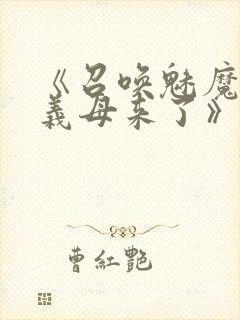 《召唤魅魔
義母来了》
曹紅艷